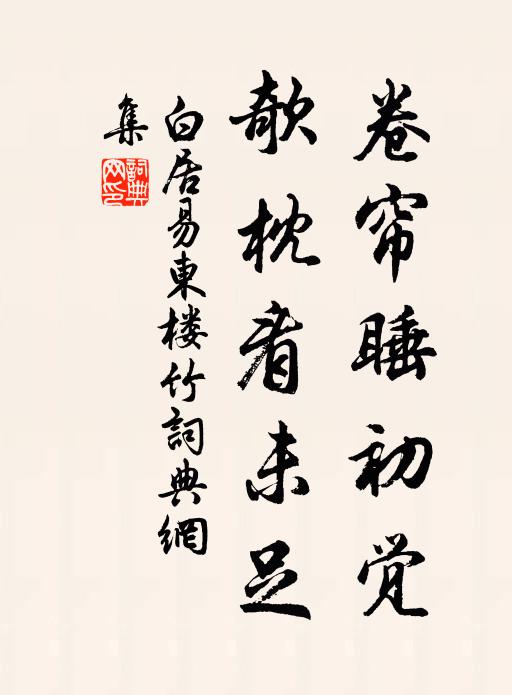 卷帘睡初觉
欹枕看未足
白居易東楼竹詞典網
集
詞典网印